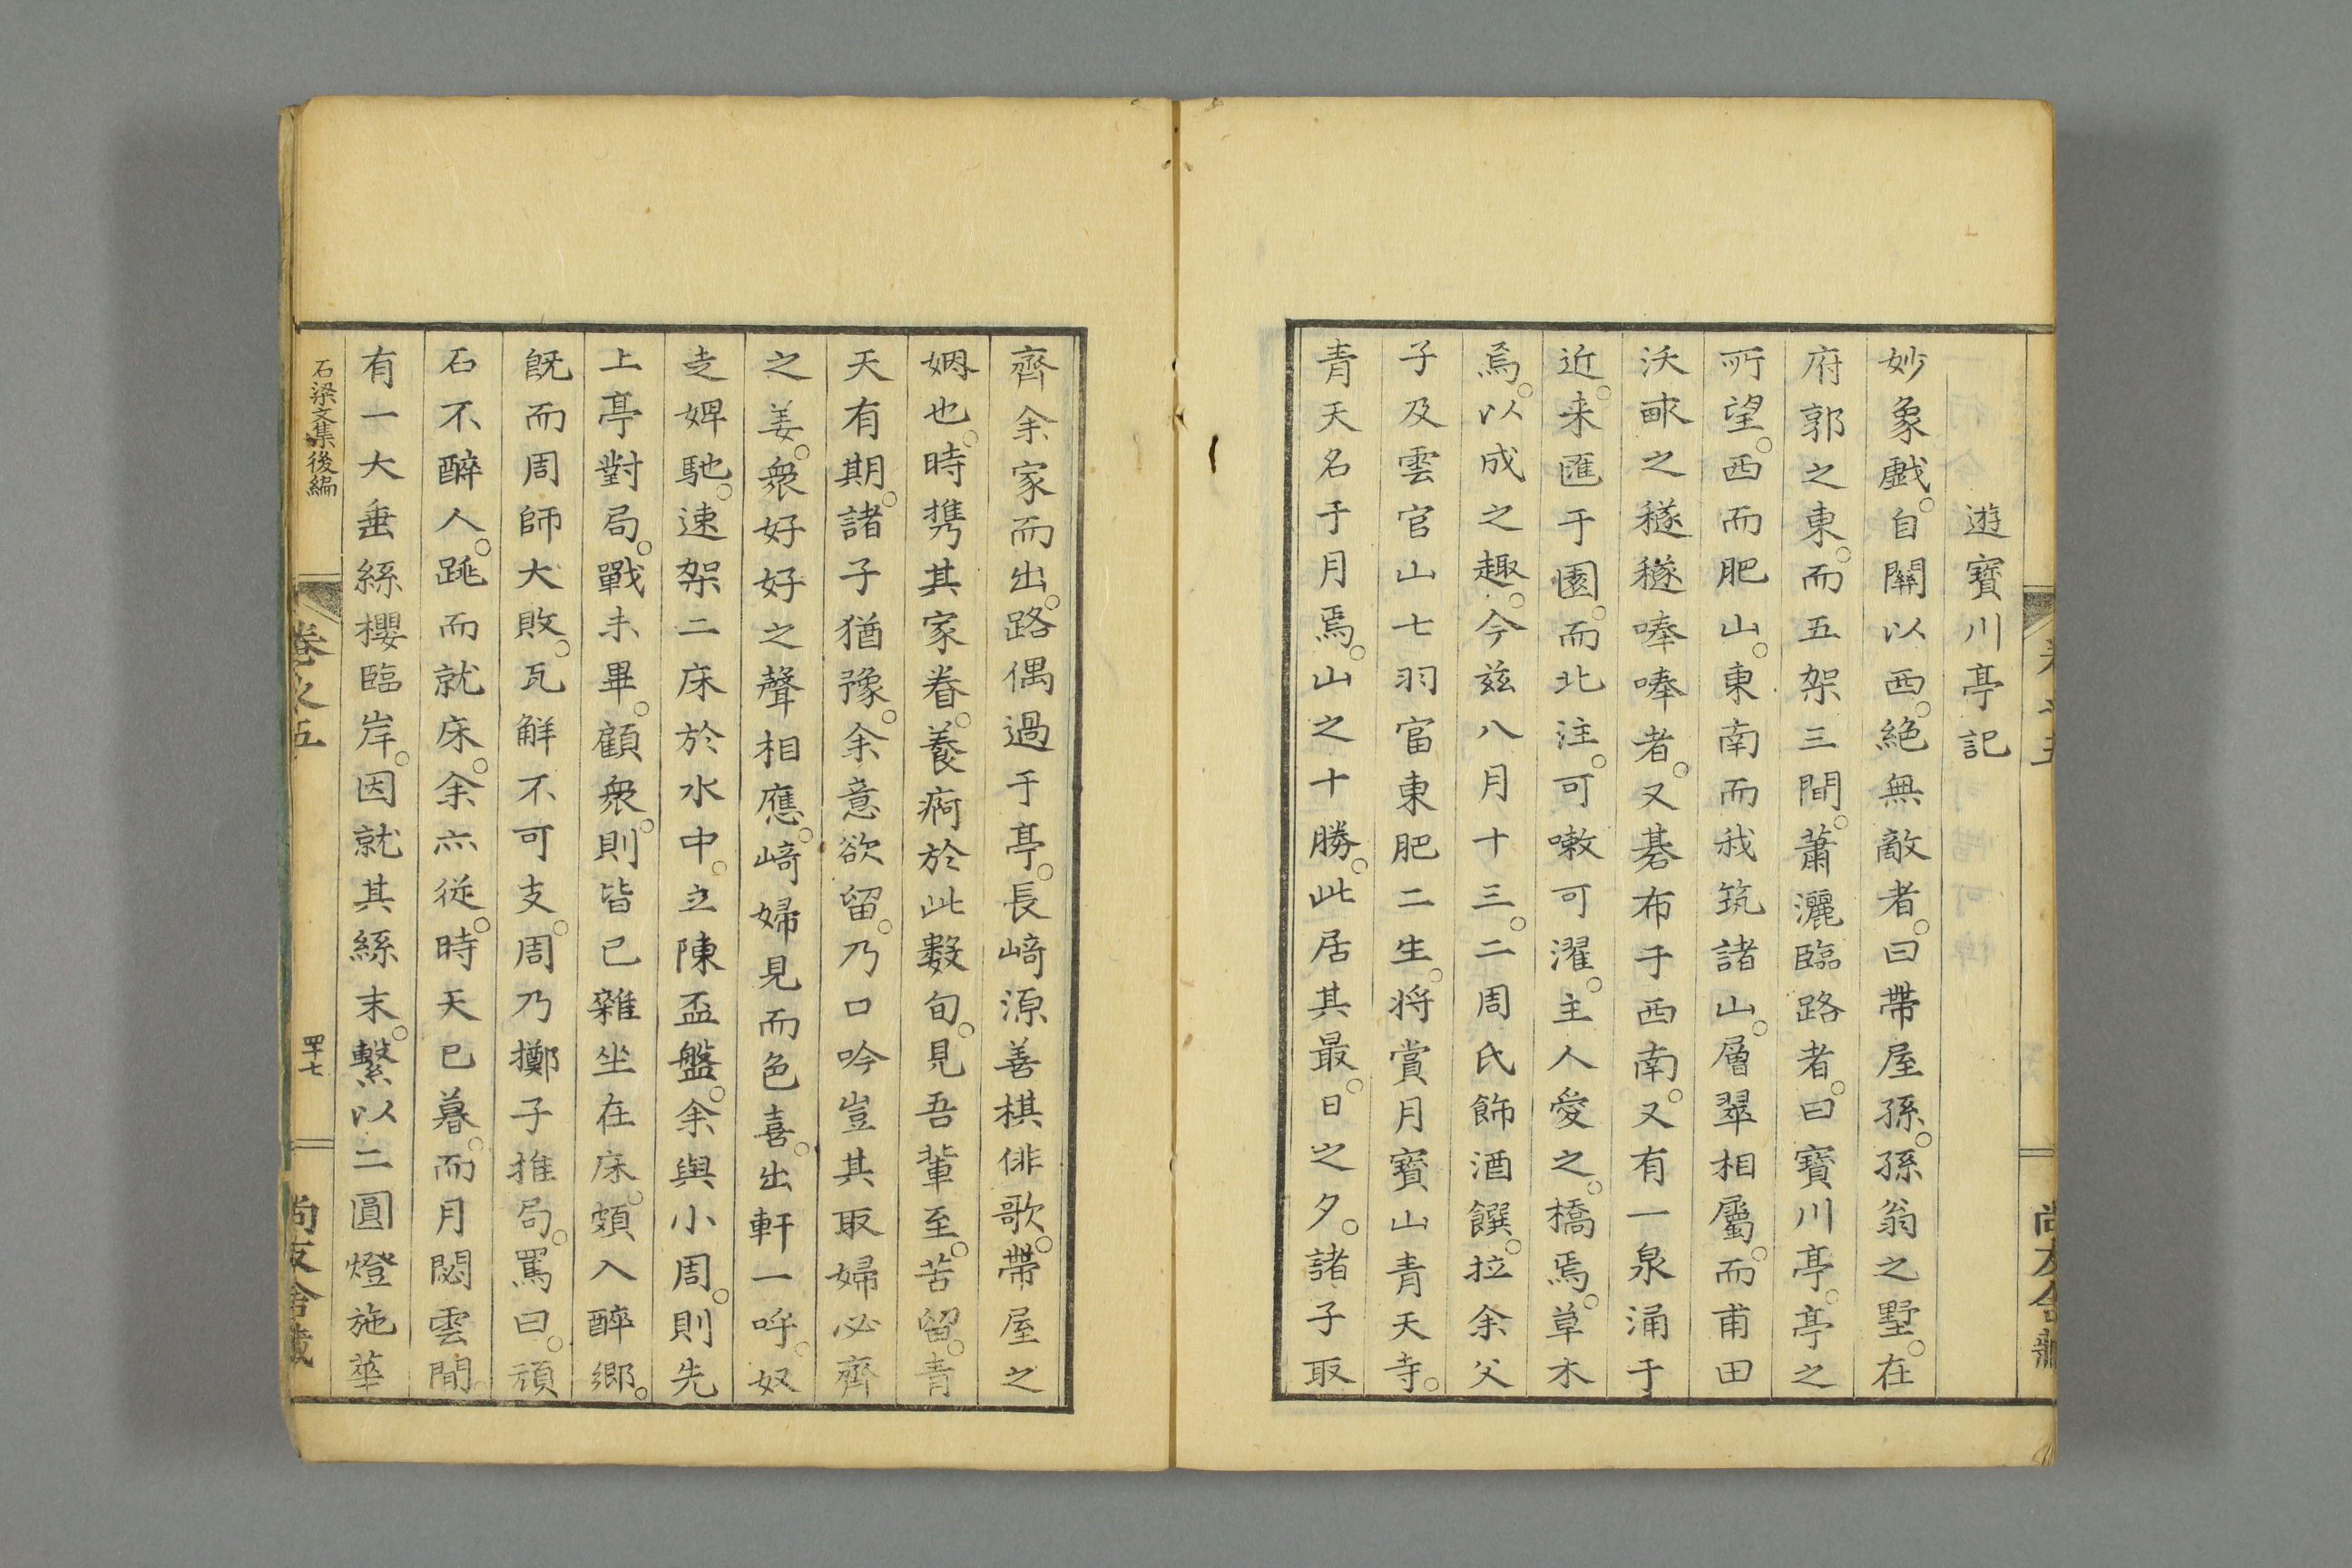 遊寶川亭記
妙象戯。自關以西。絶無敵者。曰帶屋孫。孫翁之墅。在
府郭之東。而五架三間。蕭灑臨路者。曰寶川亭。亭之
所望。西而肥山。東南而我筑諸山。層翠相屬。而甫田
沃畝之穟穟唪唪者。又碁布于西南。又有一泉涌于
近。来匯于園。而北注。可嗽可濯。主人愛之。橋焉。草木
焉。以成之趣。今兹八月十三。二周氏飾酒饌。拉余父
子及雲官山七羽富東肥二生。将賞月寳山青天寺。
青天名于月焉。山之十勝。此居其最。日之夕。諸子取
齊余家而出。路偶過于亭。長﨑源善棋俳歌。帶屋之
姻也。時携其家眷。養痾於此數旬。見吾輩至。苦留。青
天有期。諸子猶豫。余意欲留。乃口吟豈其取婦必齊
之姜。衆好好好之聲相應。﨑婦見而色喜。出軒一呼。奴
走婢馳。速架二床於水中。立陳盃盤。余與小周。則先
上亭對局。戰未畢。顧衆。則皆已雜坐在床。頗入醉鄉。
既而周師大敗。瓦解不可支。周乃擲子推局。罵曰。頑
石不醉人。跳而就床。余亦従。時天已暮。而月閟雲間。
有一大垂絲櫻臨岸。因就其絲末。繫以二圓燈施華
石梁文集後編
卷之五
四十七
尚友舎蔵